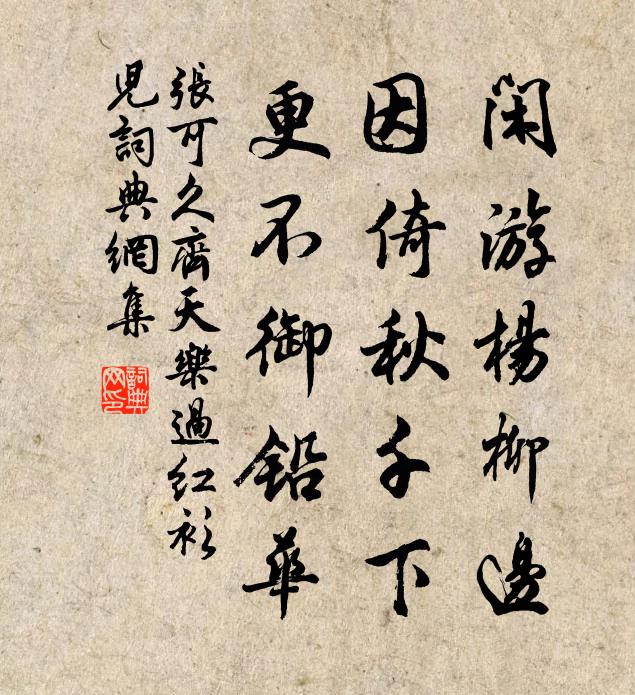 閑游楊柳邊
因倚秋千下
更不御鉛華
張可久齊天樂過紅衫
兒詞典網集
詞典
网印